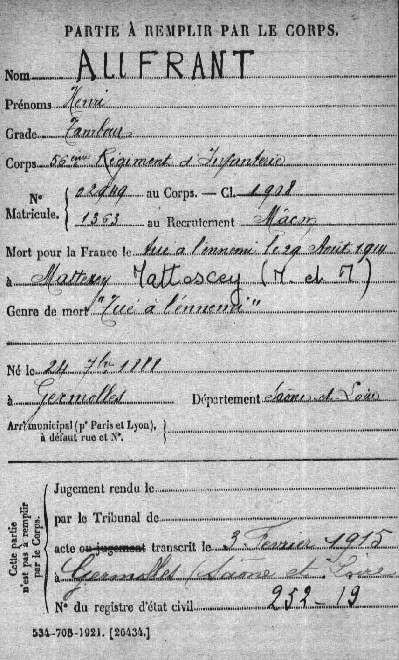 PARTIE À REMPLIR PAR LE CORPS.
Nom AUFRANT
Prénoms Henri
Grade Tambour
Corps 56ème Régiment d'Infanterie
N° Matricule. 02949 au Corps. — Cl. 1908
1363 au Recrutement Mâcon
Mort pour la France le tué à l'ennemi le 29 Août 1914
à Mattexey Mattescey (M. et M)
Genre de mort "Tué à l'ennemi"
Né le 24 7bre 1888
à Germolles Département Saône et Loire
Arrt municipal (pr Paris et Lyon), à défaut rue et N°.
Cette partie n'est pas à remplir par le Corps.
Jugement rendu le
par le Tribunal de
acte ou jugement transcrit le 3 Fevrier 1915
à Germolles (Saône et Loire
N° du registre d'état civil 252-19
534-708-1921. [26434.]